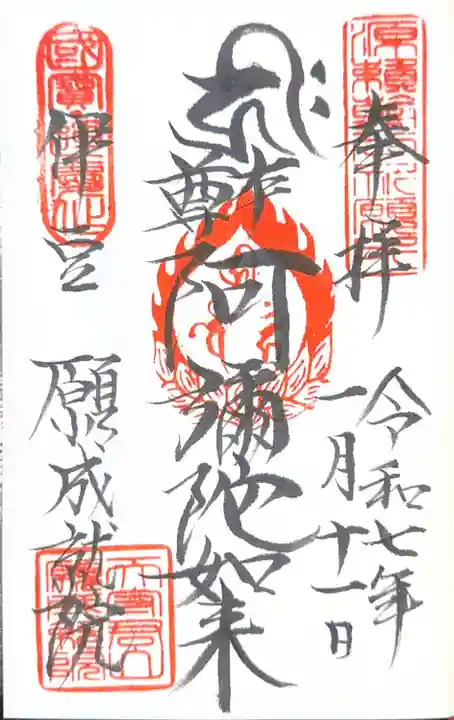 奉拝
令和七年
一月十一日
本尊阿彌陀如来
伊豆
願成就院